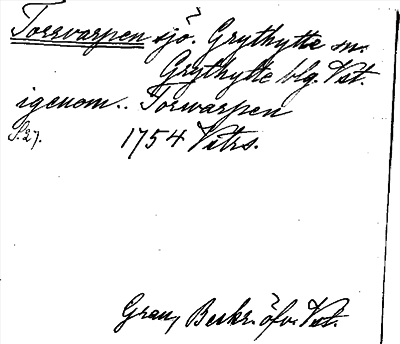 Torrvarpen sjö. Grythytte sn.
Grythytte blg. Vst.
igenom.. Torwarpen
S. 27. 1754 Vstrs.
Grau, Beskr. öfv. Vst.